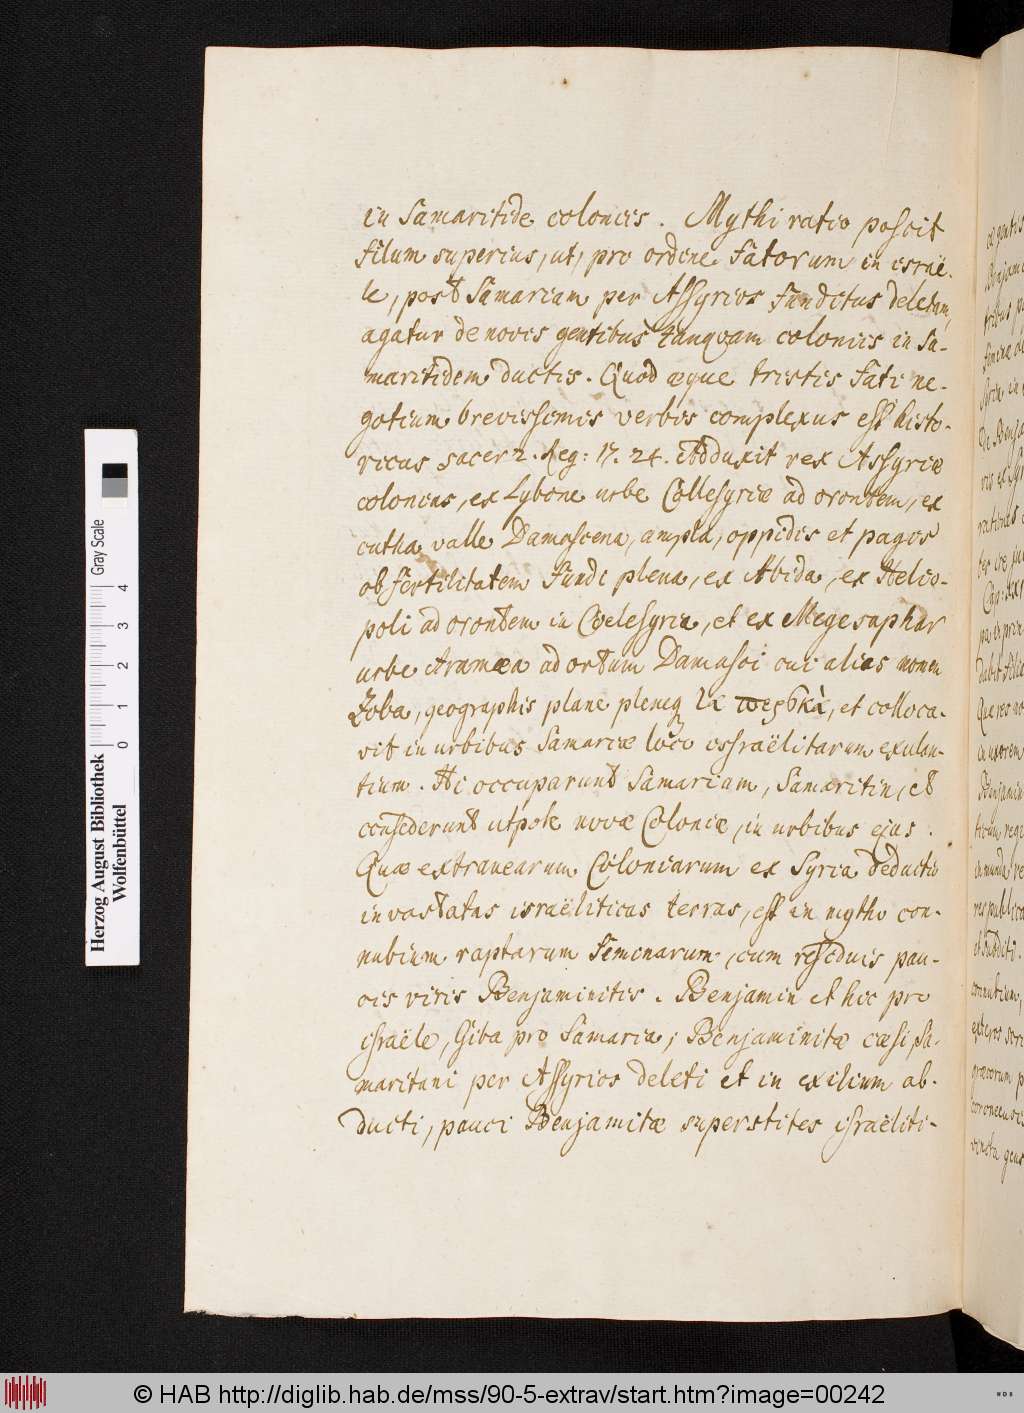 in Samaritide coloniis. Mythi ratio poscit
filum superius, ut, pro ordine fatorum in israë-
le, post Samariam per Assyrios funditus deletam,
agatur de novis gentibus tanquam coloniis in Sa-
maritidem ductis. Quod æque tristis fati ne-
gotium brevissimis verbis complexus est histo-
ricus sacer 2. Reg: 17. 24. Abduxit rex Assyriæ
colonias, ex Lybone urbe Collesyriæ ad orontem, ex
cutha valle Damascena, ampla, oppidis et pagis
ob fertilitatem fundi plena, ex Abida, ex Helio-
poli ad orontem in Coelesyria, et ex Megesaphar
urbe Aramæa ad ortum Damasci cui alias nomen
Zoba, geographis plane
, et colloca-
vit in urbibus Samariæ loco issraëlitarum exulan-
tium. Hi occuparunt Samariam, Samaritin, et
consederunt utpote novæ Coloniæ, in urbibus ejus.
Quæ extranearum Coloniarum ex Syria deductio
in vastatas israëliticas terras, est in mytho con-
nubium raptarum feminarum, cum residuis pau-
cis viris Benjaminitis. Benjamin et hic pro
israële, Giba pro Samaria; Benjaminitæ cæsi, Sa-
maritani per Assyrios deleti et in exilium ab-
ducti, pauci Benjamitæ superstites israëliti-
Gray Scale
0 1 2 3 4
Herzog August Bibliothek
Wolfenbüttel
© HAB http://diglib.hab.de/mss/90-5-extrav/start.htm?image=00242